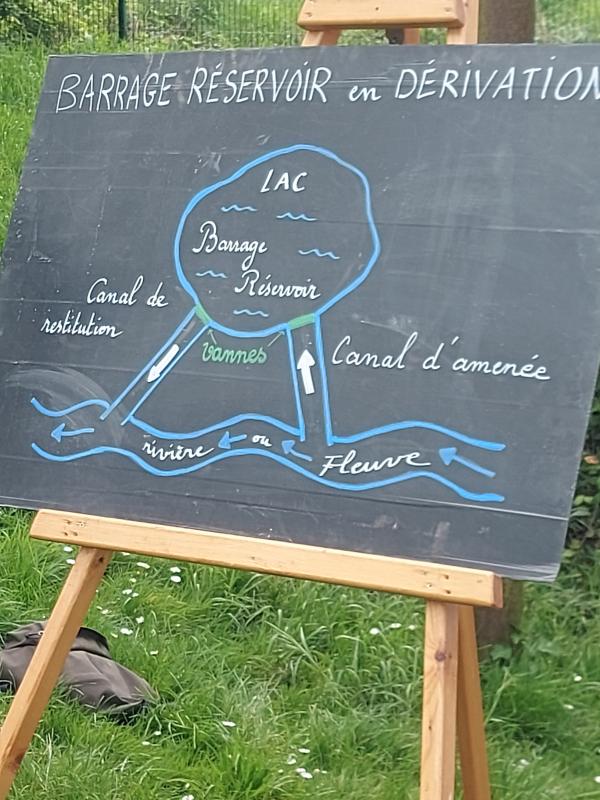 BARRAGE RÉSERVOIR en DÉRIVATION
LAC
Barrage
Réservoir
Canal de
restitution
vannes
Canal d'amenée
rivière ou Fleuve